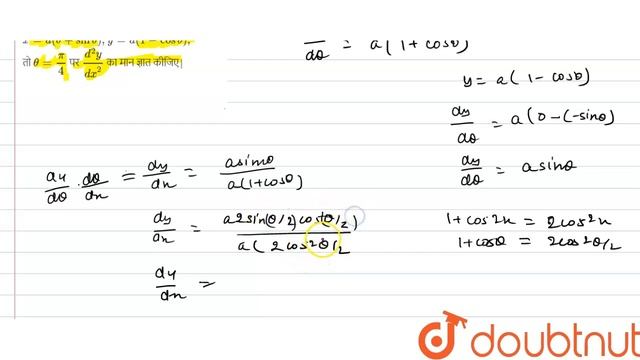 x = a(θ + sinθ), y = a(1 − cosθ),
तो θ = π/4 पर d²y/dx² का मान ज्ञात कीजिए।
/dθ = a(1+cosθ)
y = a(1 − cosθ)
dy/dθ = a(0 − (−sinθ)
dy/dθ = asinθ
dy/dθ · dθ/dx = dy/dx = asinθ / a(1+cosθ)
dy/dx = a2sin(θ/2)cosθ/2) / a(2cos²θ/2
1+cos2x = 2cos²x
1+cosθ = 2cos²θ/2
dy/dx =
doubtnut